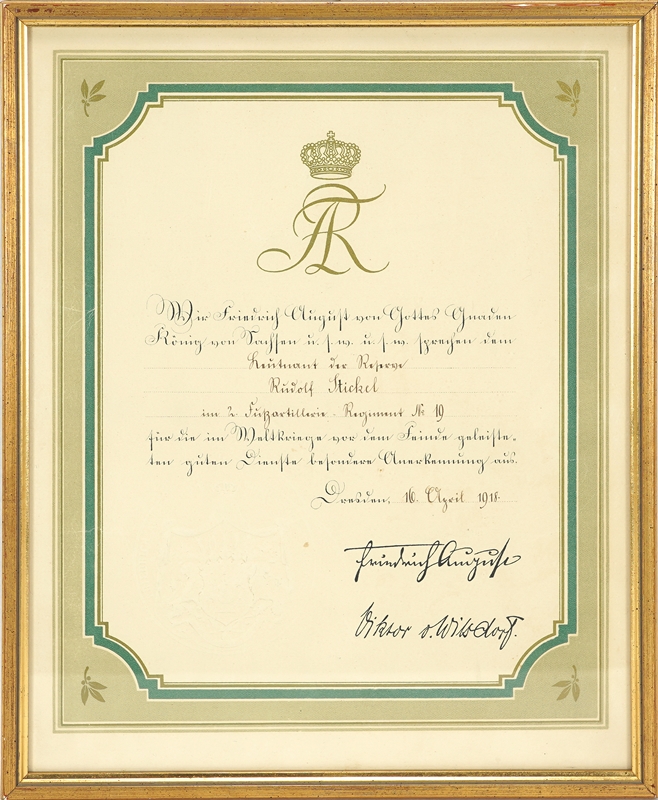 FAR
Wir Friedrich August von Gottes Gnaden
König von Sachsen u. s. w. u. s. w. sprechen dem
Leutnant der Reserve
Rudolf Stickel
im 2. Fußartillerie-Regiment № 19
für die im Weltkriege vor dem Feinde geleiste-
ten guten Dienste besondere Anerkennung aus.
Dresden, 16. April 1918.
Friedrich August
Viktor v. Wilsdorf.